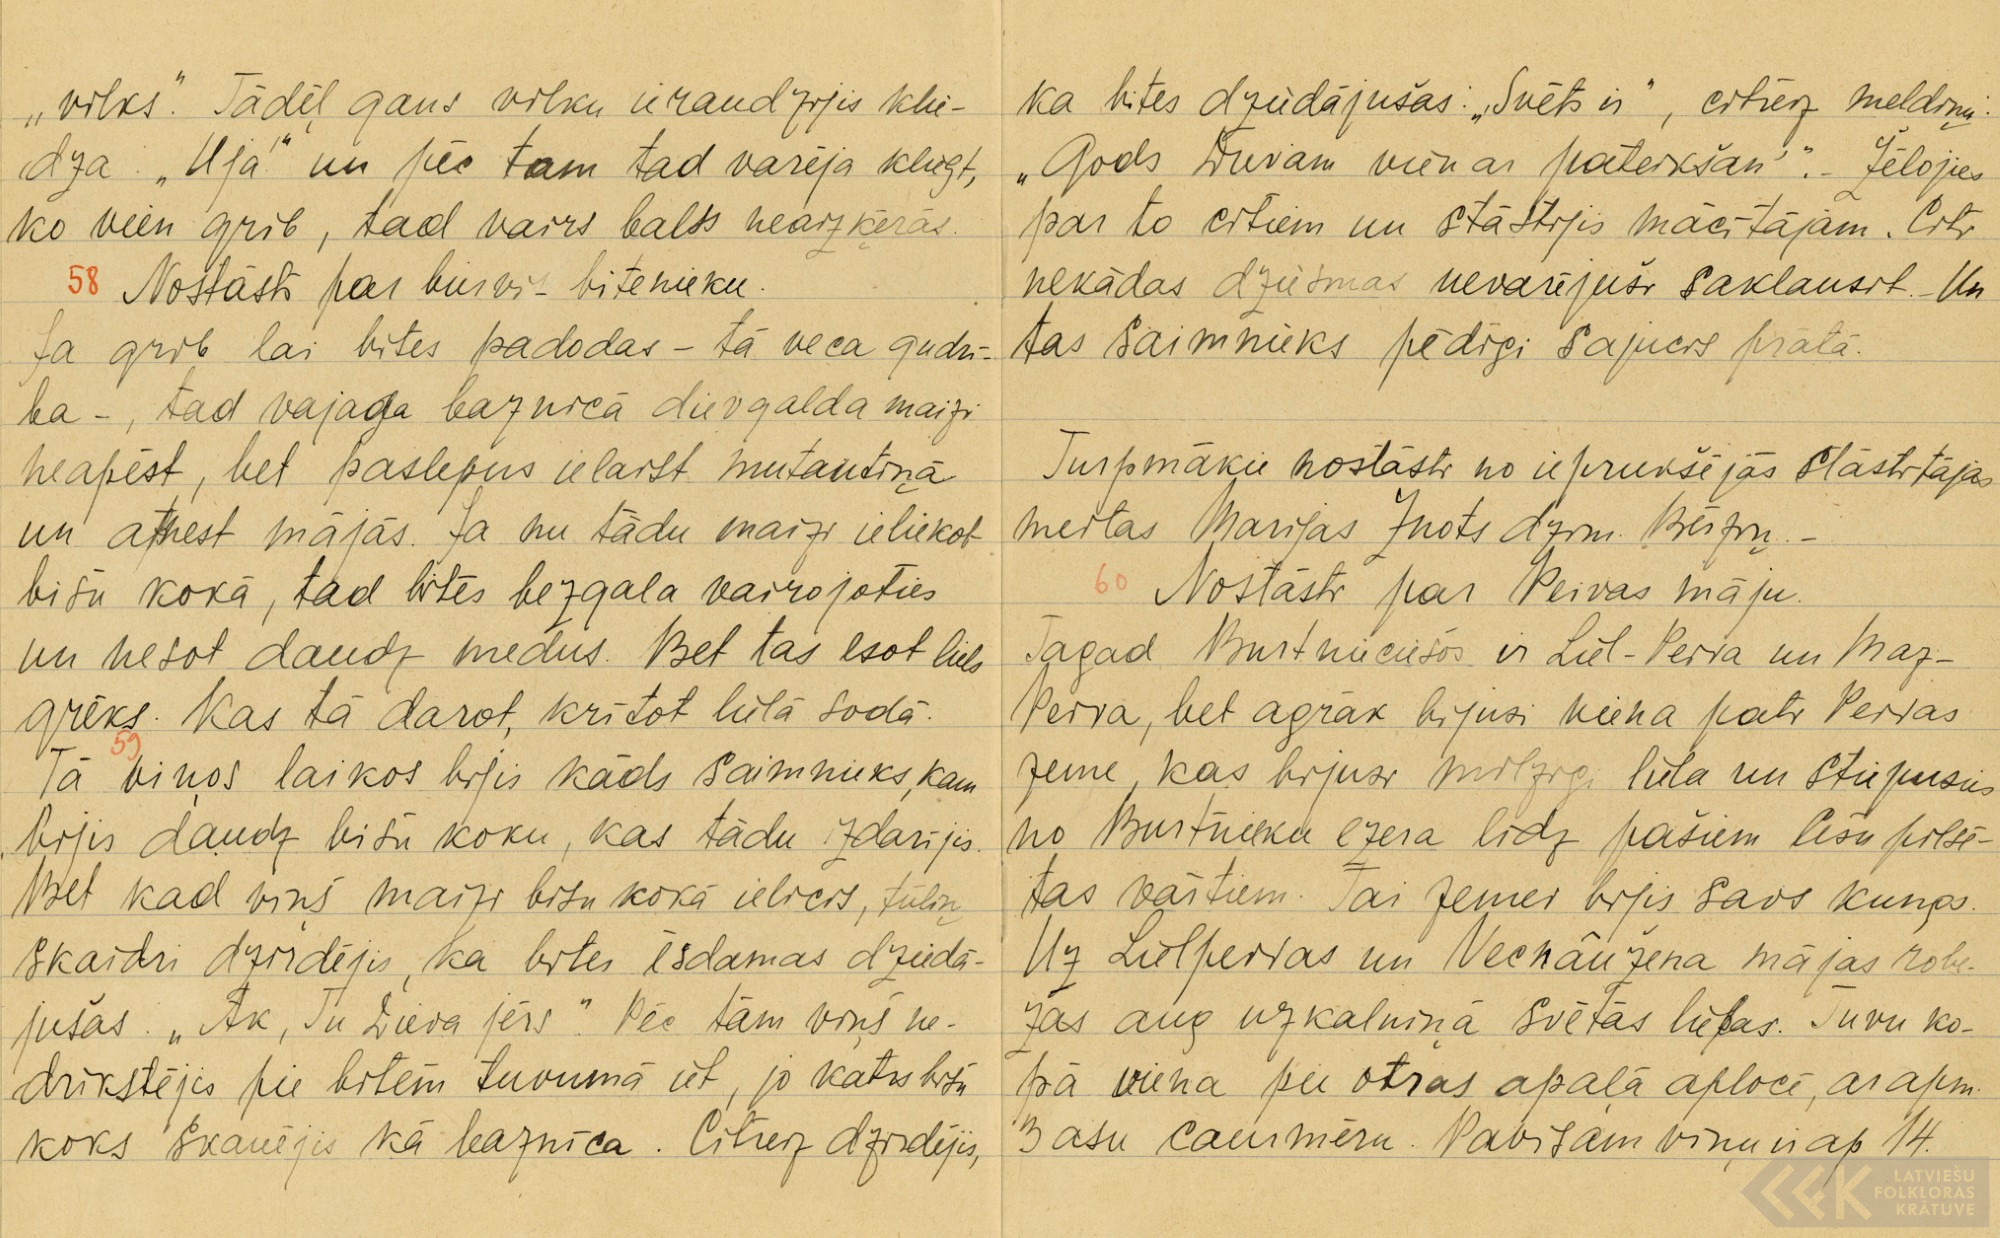 „vilks". Tādēļ gans vilku ieraudzījis klie-
dza: „Uja!" un pēc tam tad varēja kliegt,
ko vien grib, tad vairs balss neaizķērās.
58 Nostāsts par burvi-bitenieku.
Ja grib lai bites padodas – tā veca gudrī-
ba –, tad vajaga baznīcā dievgalda maizi
neapēst, bet paslepus ielaist mutautiņā
un atnest mājās. Ja nu tādu maizi ieliekot
bišu kokā, tad bites bezgala vairojoties
un nesot daudz medus. Bet tas esot liels
grēks. Kas tā darot, krītot lielā sodā.
59
Tā viņos laikos bijis kāds saimnieks, kam
bijis daudz bišu koku, kas tādu izdarījis.
Bet kad viņš maizi bišu kokā ielicis, tūliņ
skaidri dzirdējis, ka bites ēsdamas dziedā-
jušas: „Ak, Tu Dieva jērs". Pēc tām viņš ne-
drīkstējis pie bitēm tuvumā iet, jo katrs bišu
koks skanējis kā baznīca. Citreiz dzirdējis,
ka bites dziedājušas: „Svēts ir", citreiz meldiņu:
„Gods Dievam vien ar pateikšan'". – Žēlojies
par to citiem un stāstījis mācītājam. Citi
nekādas dziesmas nevarējuši saklausīt. – Un
tas saimnieks pēdīgi sajucis prātā.
Turpmākie nostāsti no iepriekšējās stāstītājas
meitas Marijas Znots dzim. Bērziņ. –
60 Nostāsti par Peivas māju.
Tagad Burtnieciešos ir Liel-Peiva un Maz-
Peiva, bet agrāk bijusi viena pati Peivas
zeme, kas bijusi milzīgi liela un stiepusies
no Burtnieku ezera līdz pašiem Cēsu pilsē-
tas vārtiem. Tai zemei bijis savs kungs.
Uz Lielpeivas un Vecnāužena mājas robe-
žas aug uzkalniņā svētās liepas. Tuvu ko-
pā viena pie otras apaļā aplocē, ar apm.
3 asu caurmēru. Pavisam viņu ir ap 14.
LATVIEŠU
FOLKLORAS
KRĀTUVE